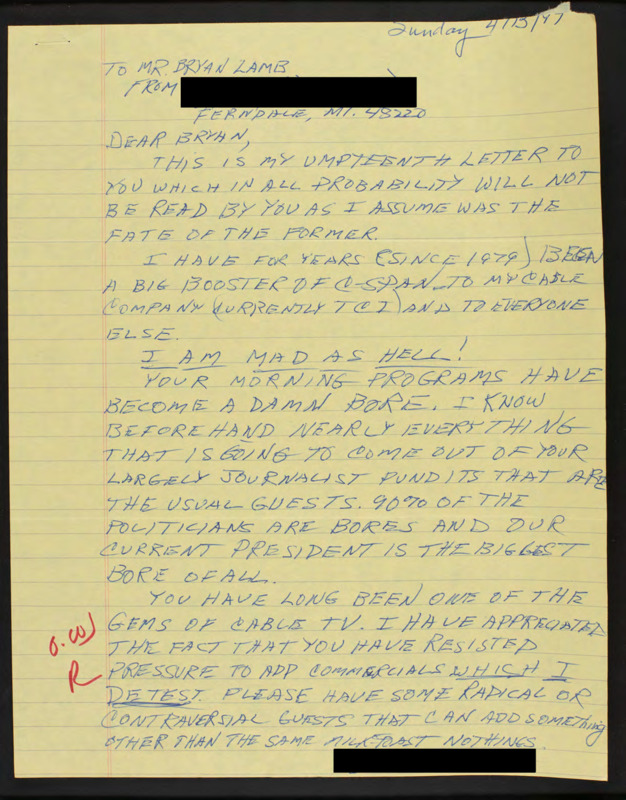 Sunday 4/13/97
TO MR. BRYAN LAMB
FROM
FERNDALE, MI. 48220
DEAR BRYAN,
THIS IS MY UMPTEENTH LETTER TO
YOU WHICH IN ALL PROBABILITY WILL NOT
BE READ BY YOU AS I ASSUME WAS THE
FATE OF THE FORMER.
I HAVE FOR YEARS (SINCE 1979) BEEN
A BIG BOOSTER OF C-SPAN TO MY CABLE
COMPANY (CURRENTLY TCI) AND TO EVERYONE
ELSE.
I AM MAD AS HELL!
YOUR MORNING PROGRAMS HAVE
BECOME A DAMN BORE. I KNOW
BEFOREHAND NEARLY EVERYTHING
THAT IS GOING TO COME OUT OF YOUR
LARGELY JOURNALIST PUNDITS THAT ARE
THE USUAL GUESTS. 90% OF THE
POLITICIANS ARE BORES AND OUR
CURRENT PRESIDENT IS THE BIGGEST
BORE OF ALL.
YOU HAVE LONG BEEN ONE OF THE
GEMS OF CABLE TV. I HAVE APPRECIATED
THE FACT THAT YOU HAVE RESISTED
PRESSURE TO ADD COMMERCIALS WHICH I
DETEST. PLEASE HAVE SOME RADICAL OR
CONTRAVERSIAL GUESTS THAT CAN ADD SOMEthing
OTHER THAN THE SAME MILK-TOAST NOTHINGS.
R